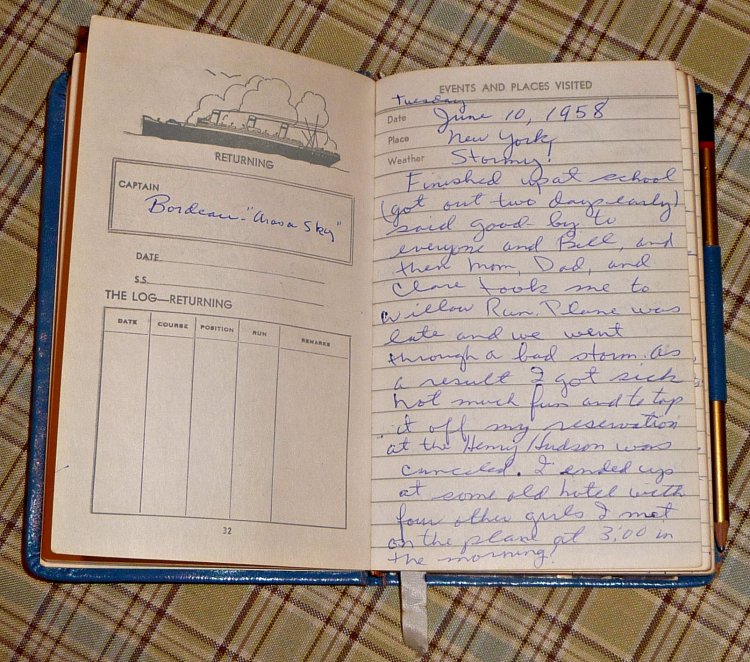 RETURNING
CAPTAIN
Bordeau - "Arosa Sky"
DATE
S.S.
THE LOG—RETURNING
DATE COURSE POSITION RUN REMARKS
32
EVENTS AND PLACES VISITED
Tuesday
Date June 10, 1958
Place New York
Weather Stormy!
Finished up at school
(got out two days early)
said good-by to
everyone and Bill, and
then Mom, Dad, and
Clare took me to
Willow Run. Plane was
late and we went
through a bad storm. As
a result I got sick
not much fun and to top
it off my reservation
at the Henry Hudson was
canceled. I ended up
at some old hotel with
four other girls I met
on the plane at 3:00 in
the morning!